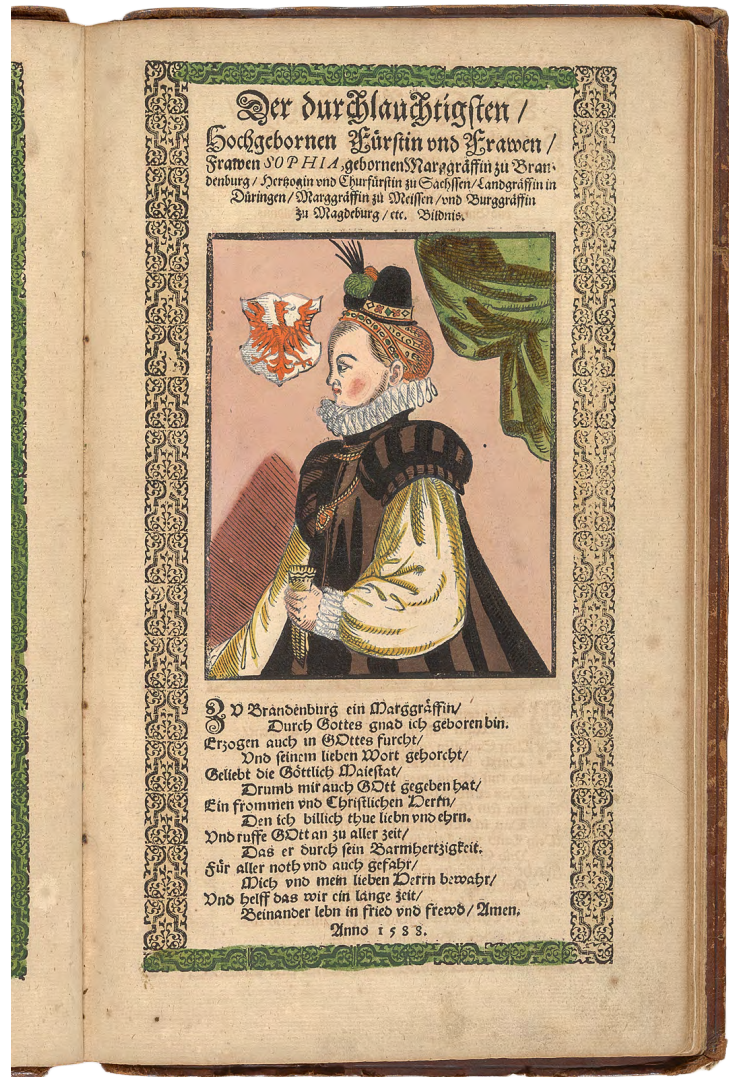 Der durchlauchtigsten /
Hochgebornen Fürstin vnd Frawen /
Frawen SOPHIA, gebornen Marggräffin zu Bran-
denburg / Hertzogin vnd Churfürstin zu Sachssen / Landgräffin in
Düringen / Marggräffin zu Meissen / vnd Burggräffin
zu Magdeburg / etc. Bildnis.
ZV Brandenburg ein Marggräffin /
Durch Gottes gnad ich geboren bin.
Erzogen auch in GOttes furcht /
Vnd seinem lieben Wort gehorcht /
Geliebt die Göttlich Maiestat /
Drumb mir auch GOtt gegeben hat /
Ein frommen vnd Christlichen Herrn /
Den ich billich thue liebn vnd ehrn.
Vnd ruffe GOtt an zu aller zeit /
Das er durch sein Barmhertzigkeit.
Für aller noth vnd auch gefahr /
Mich vnd mein lieben Herrn bewahr /
Vnd helff das wir ein lange zeit /
Beinander lebn in fried vnd frewd / Amen.
Anno 1588.